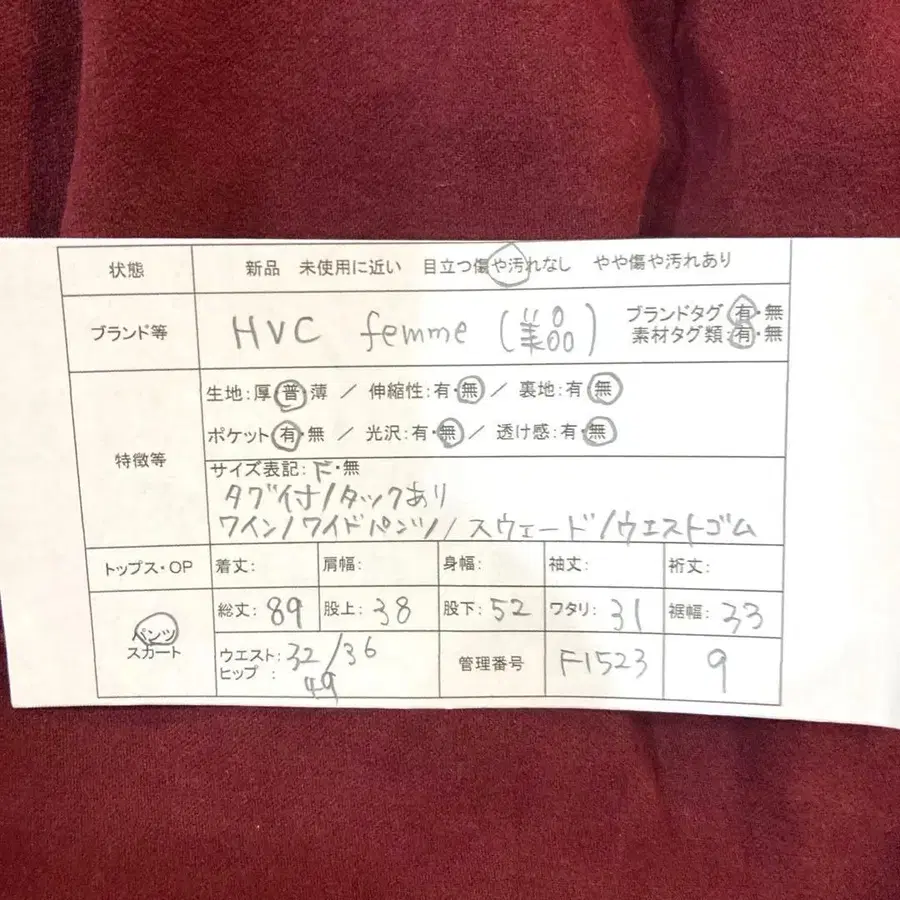 状態 新品 未使用に近い 目立つ傷や汚れなし やや傷や汚れあり
ブランド等 HVC femme (美品) ブランドタグ 有・無
素材タグ類:有・無
特徴等
生地:厚・普・薄 / 伸縮性:有・無 / 裏地:有・無
ポケット 有・無 / 光沢:有・無 / 透け感:有・無
サイズ表記:F・無
タグ付/タックあり
ワイン/ワイドパンツ/スウェード/ウエストゴム
トップス・OP 着丈: 肩幅: 身幅: 袖丈: 裄丈:
パンツ
スカート
総丈:89 股上:38 股下:52 ワタリ:31 裾幅:33
ウエスト:32/36
ヒップ:49
管理番号 F1523 9